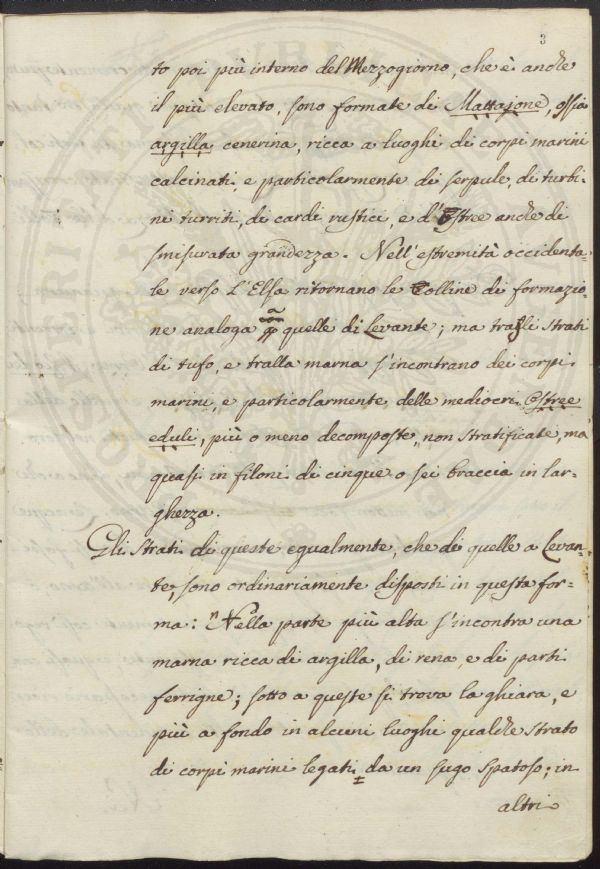 3
to poi più interno del Mezzogiorno, che è anche
il più elevato, sono formate di Mattajone, ossia
argilla cenerina, ricca a luoghi di corpi marini
calcinati e particolarmente di serpule, di turbi-
ni turriti, di cardi rustici, e d'Ostree anche di
smisurata grandezza. Nell'estremità occidenta-
le verso L'Elsa ritornano le Colline di formazio-
ne analoga con quelle di Levante; ma tragli strati
di tufo, e tralla marna s'incontrano dei corpi
marini, e particolarmente delle mediocri Ostree
eduli, più o meno decomposte, non stratificate, ma
quasi in filoni di cinque o sei braccia in lar-
ghezza.
Gli strati di queste egualmente, che di quelle a Levan-
te, sono ordinariamente disposti in questa for-
ma: "Nella parte più alta s'incontra una
marna ricca di argilla, di rena, e di parti
ferrigne; sotto a queste si trova la ghiara, e
più a fondo in alcuni luoghi qualche strato
di corpi marini legati da un sugo spatoso; in
altri